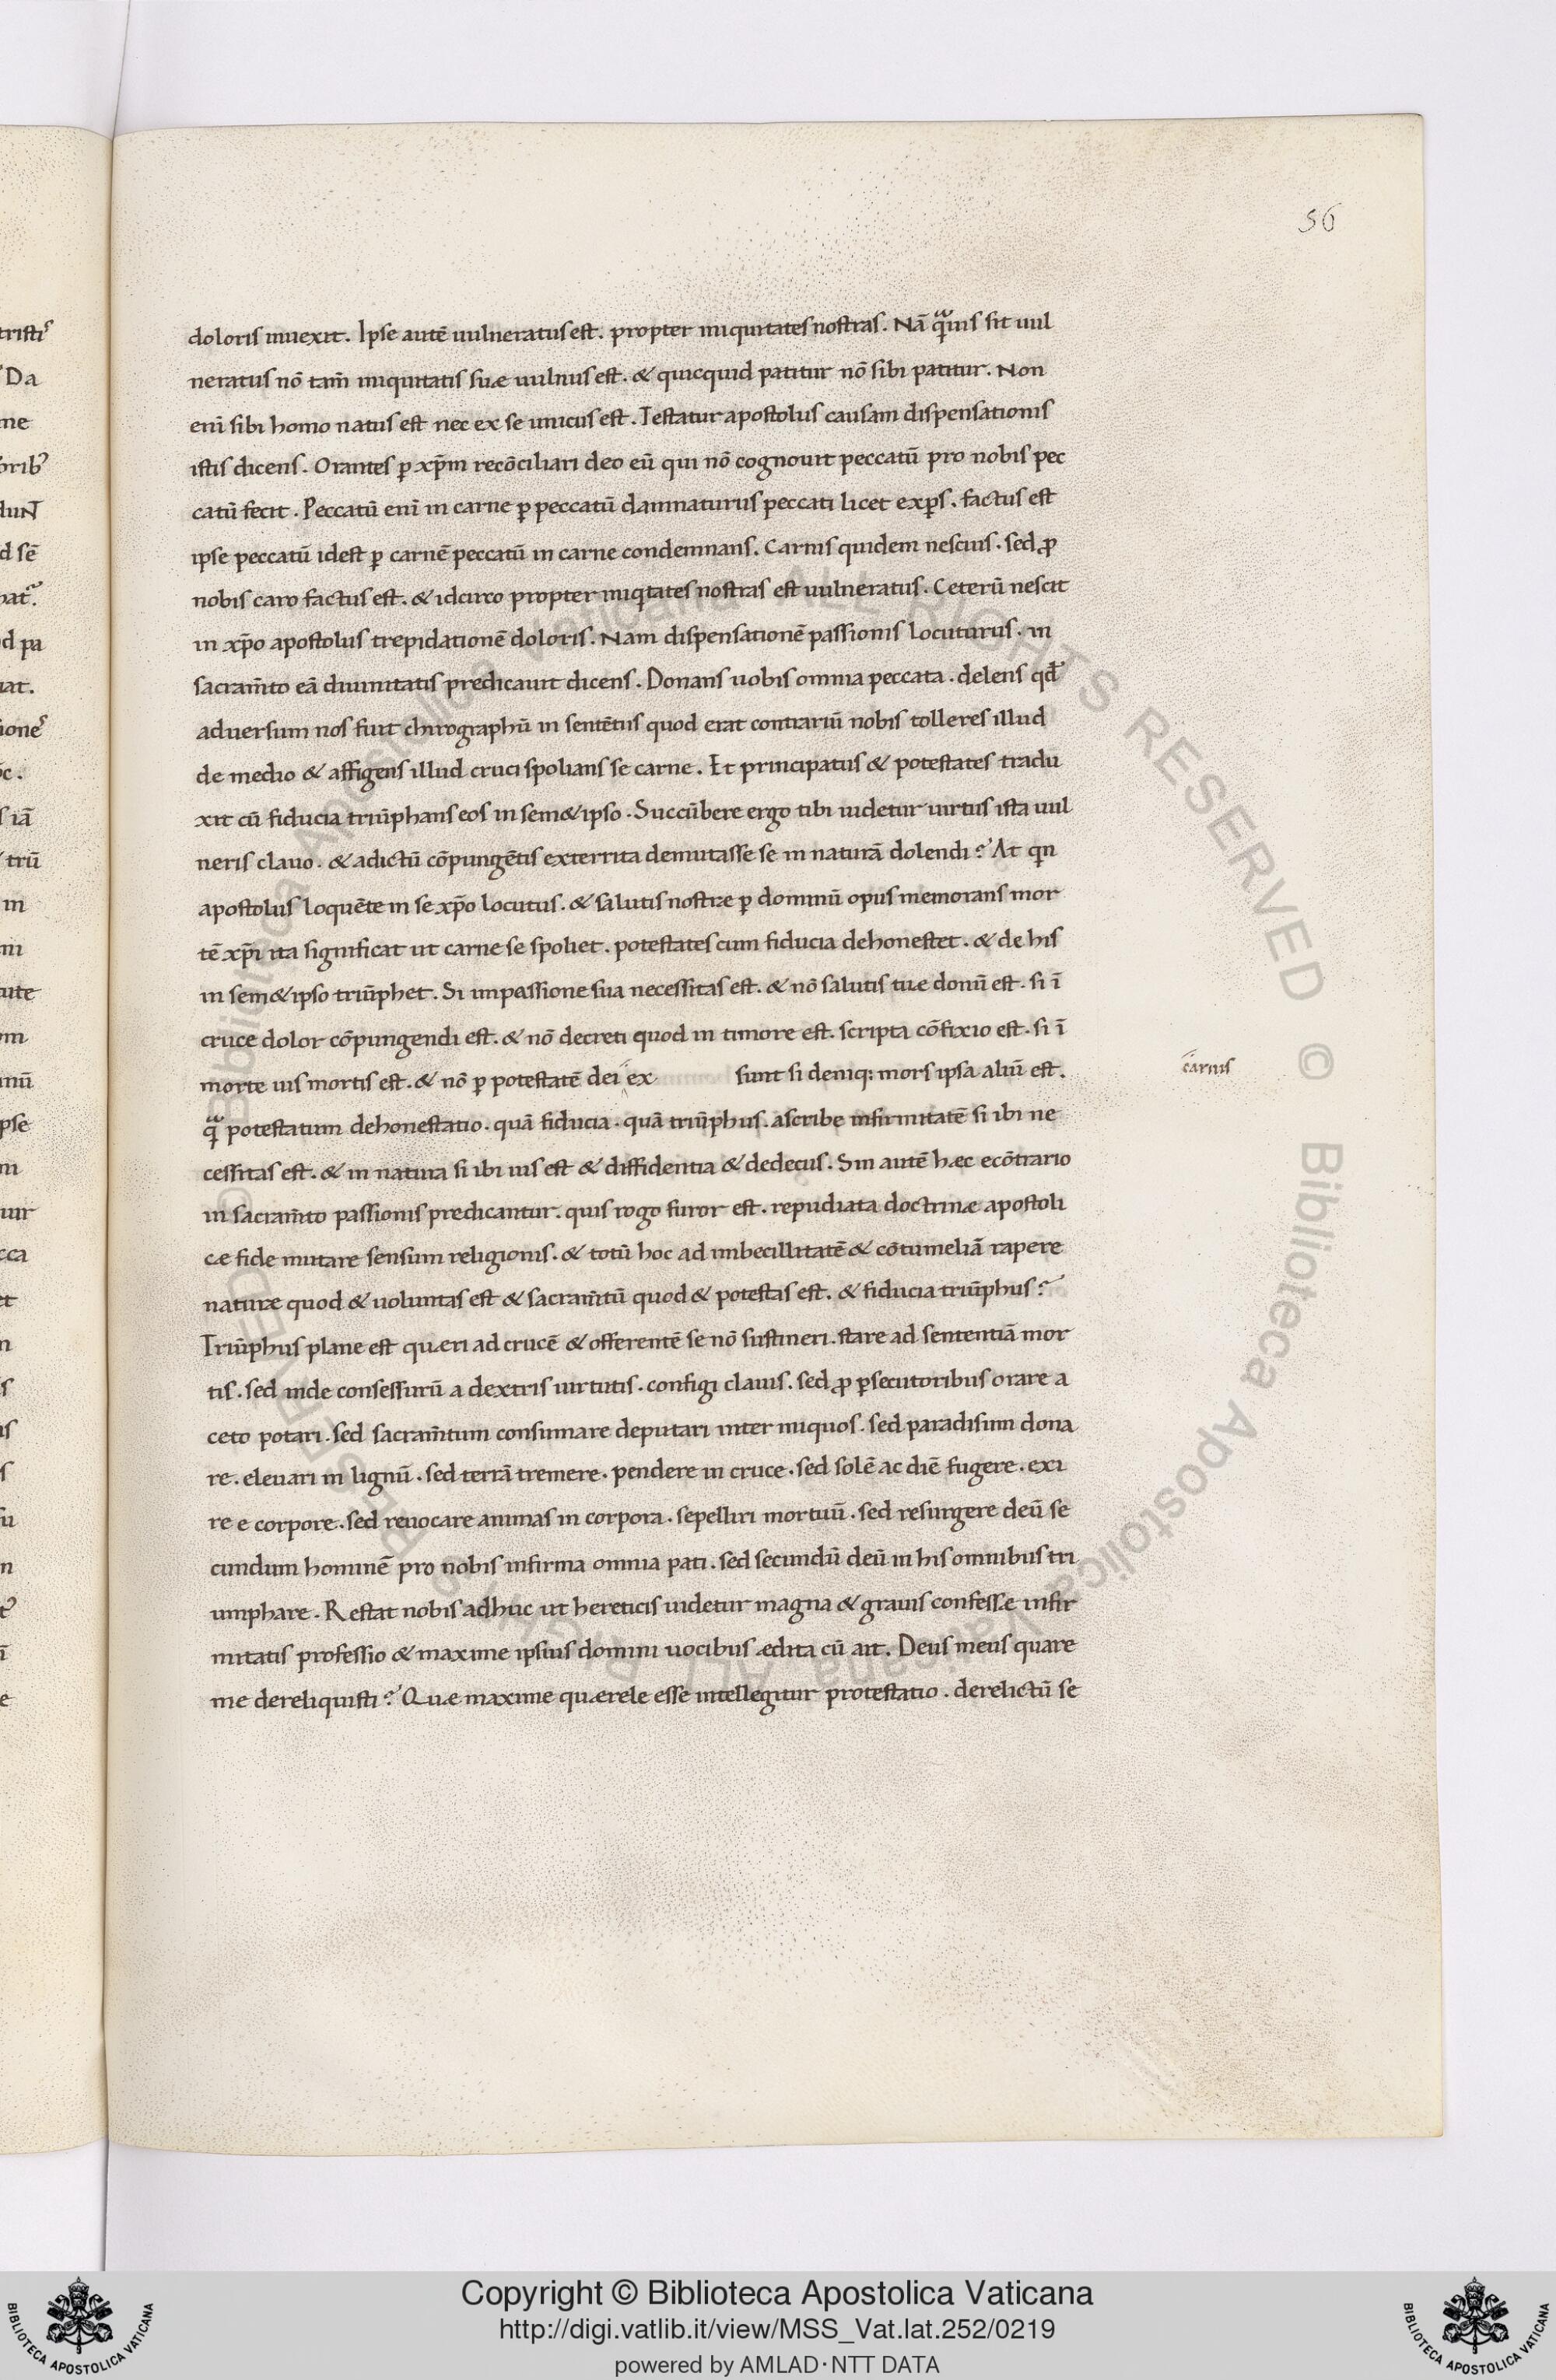 56
doloris inuexit. Ipse autē uulneratus est. propter iniquitates nostras. Nā qᷓuis sit uul
neratus nō tam̄ iniquitatis suæ uulnus est. & quicquid patitur nō sibi patitur. Non
eni sibi homo natus est nec ex se unicus est. Testatur apostolus causam dispensationis
istis dicens. Orantes ꝑ xp̄m recōciliari deo eū qui nō cognouit peccatū pro nobis pec
catū fecit. Peccatū eni in carne ꝑ peccatū damnaturus peccati licet exꝑs. factus est
ipse peccatū idest ꝑ carnē peccatū in carne condemnans. Carnis quidem nescius. sed ꝓ
nobis caro factus est. & idcirco propter iniqtates nostras est uulneratus. Ceterū nescit
in xp̄o apostolus trepidationē doloris. Nam dispensationē passionis locuturus. in
sacram̄to eā diuinitatis predicauit dicens. Donans uobis omnia peccata. delens qđ
aduersum nos fuit chirographū in sentētiis quod erat contrariū nobis tolleres illud
de medio & affigens illud cruci spolians se carne. Et principatus & potestates tradu
xit cū fiducia triūphans eos in sem&ipso. Succūbere ergo tibi uidetur uirtus ista uul
neris clauo. & adictū cōpungētis exterrita demutasse se in naturā dolendi? At qn
apostolus loquēte in se xp̄o locutus. & salutis nostræ ꝑ dominū opus memorans mor
tē xp̄i ita significat ut carne se spoliet. potestates cum fiducia dehonestet. & de his
in sem&ipso triūphet. Si inpassione sua necessitas est. & nō salutis tuæ donū est. si ī
cruce dolor cōpungendi est. & nō decreti quod in timore est. scripta cōfixio est. si ī
morte uis mortis est. & nō ꝑ potestatē dei ex sunt si deniq; mors ipsa aliū est.
carnis
qᷓ potestatum dehonestatio. quā fiducia. quā triūphus. ascribe infirmitatē si ibi ne
cessitas est. & in natura si ibi uis est & diffidentia & dedecus. Sin autē hæc ecōtrario
in sacram̄to passionis predicantur. quis rogo furor est. repudiata doctrinæ apostoli
cæ fide mutare sensum religionis. & totū hoc ad inbecillitatē & cōtumeliā rapere
naturæ quod & uoluntas est & sacram̄tū quod & potestas est. & fiducia triūphus?
Triūphus plane est quæri ad crucē & offerentē se nō sustineri. stare ad sententiā mor
tis. sed inde consessurū a dextris uirtutis. configi clauis. sed ꝓ ꝑsecutoribus orare a
ceto potari. sed sacram̄tum consumare deputari inter iniquos. sed paradisum dona
re. eleuari in lignū. sed terrā tremere. pendere in cruce. sed solē ac diē fugere. exi
re e corpore. sed reuocare animas in corpora. sepeliri mortuū. sed resurgere deū se
cundum hominē pro nobis infirma omnia pati. sed secundū deū in his omnibus tri
umphare. Restat nobis adhuc ut hereticis uidetur magna & grauis confessæ infir
mitatis professio & maxime ipsius domini uocibus ædita cū ait. Deus meus quare
me dereliquisti? Quæ maxime quærele esse intellegitur protestatio. derelictū se
Copyright © Biblioteca Apostolica Vaticana
http://digi.vatlib.it/view/MSS_Vat.lat.252/0219
powered by AMLAD·NTT DATA